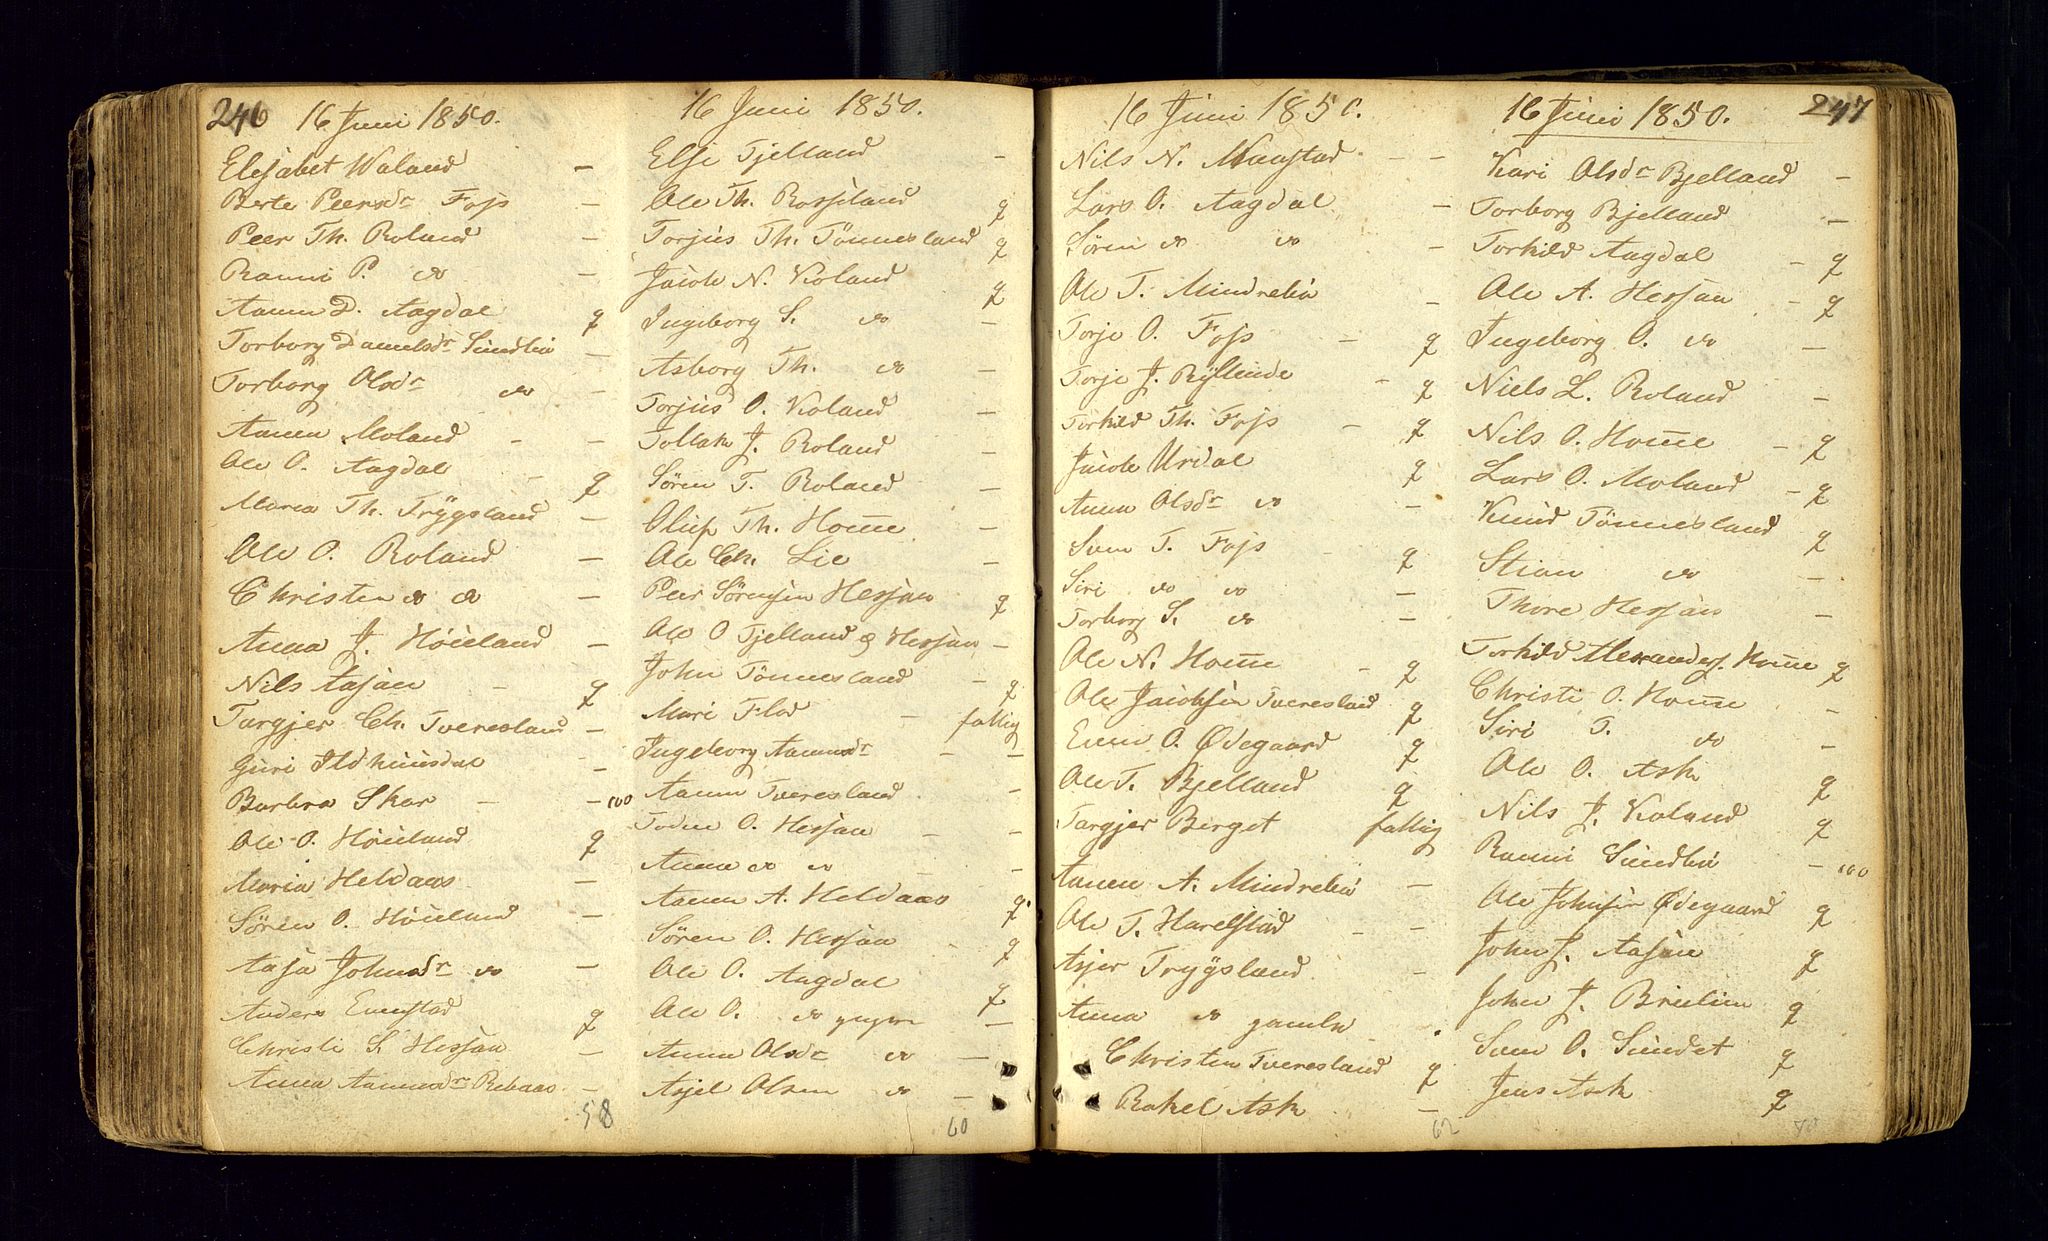 246
16 Juni 1850.
Elisabet Waland –
Berte Peersdr Foss –
Peer Th. Roland –
Ranni P. do –
Aanen D. Aagdal q
Torborg Danielsdr Sundlia –
Torborg Olsdr do –
Aanen Moland – –
Ole O. Aagdal – q
Maren Th. Trygsland –
Ole O. Roland –
Christen do do –
Anna J. Høieland –
Nils Aasan – q
Targjer Ch. Tveresland –
Guri Ildhuusdal –
Barbra Skar – –
Ole O. Høieland q
Maria Heldaas –
Søren O. Høieland –
Aasa Johnsdr do –
Anders Enerstad q
Christi S. Hessaa –
Anna Aanensdr Rebaas –
58
16 Juni 1850.
Else Tjelland –
Ole Th. Rosseland q
Torjus Th. Tønnesland q
Jacob N. Koland q
Ingeborg S. do –
Asborg Th. do –
Torjus O. Koland –
Tollak J. Roland –
Søren T. Roland –
Oluf Th. Homme –
Ole Ch. Lie –
Peer Sørensen Hessaa q
Ole O Tjelland & Hessaa –
John Tønnesland – q
Mari Flod – fattig
Ingeborg Aanensdr – –
Aanen Tveresland –
Tone O. Hessaa – –
Anna do do –
Aanen A. Heldaas q.
Søren O. Hessaa – q
Ole O. Aagdal q
Ole O. do yngre –
Anne Olsdr do –
Asjel Olsen do –
60
16 Juni 1850.
Nils N. Naastad – –
Lars O. Aagdal –
Søren do do –
Ole T. Mindrebø –
Torje O. Foss – q
Torje J. Ryllende – q
Torkild Th. Foss – q
Jacob Urdal q
Anna Olsdr do –
Sven T. Foss – q
Siri do do –
Torborg S. do –
Ole N. Homme – q
Ole Jacobsen Tveresland q
Even O. Ødegaard q
Ole T. Bjelland q
Targjer Berget fattig
Aanen A. Mindrebø –
Ole T. Harelstad – –
Asjer Trygsland –
Anna do gamle
Christen Tveresland q
Rakel Ask –
62
247
16 Juni 1850.
Kari Olsdr Bjelland –
Torborg Bjelland –
Torkild Aagdal – q
Ole A. Hessaa – q
Ingeborg O. do –
Niels L. Roland –
Nils O. Homme – q
Lars O. Moland – q
Knud Tønnesland q
Stian do –
Thore Hessaa –
Torkild Alexanders. Homme q
Christi O. Homme –
Siri T. do –
Ole O. Ask q
Nils J. Koland q
Ranni Sundlia –
Ole Johnsen Ødegaard q
John J. Aasan q
John J. Brulien q
Sven O. Sundet q
Jens Ask q
70